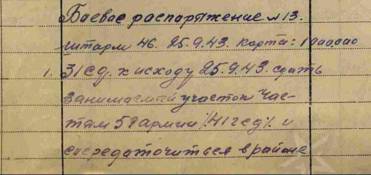 Боевое распоряжение №13.
штарм 46. 25.9.43. карта: 100.000
1. 31 сд. к исходу 25.9.43. сдать
занимаемый участок час-
тям 58 армии /41 гсд/. и
сосредоточиться в районе